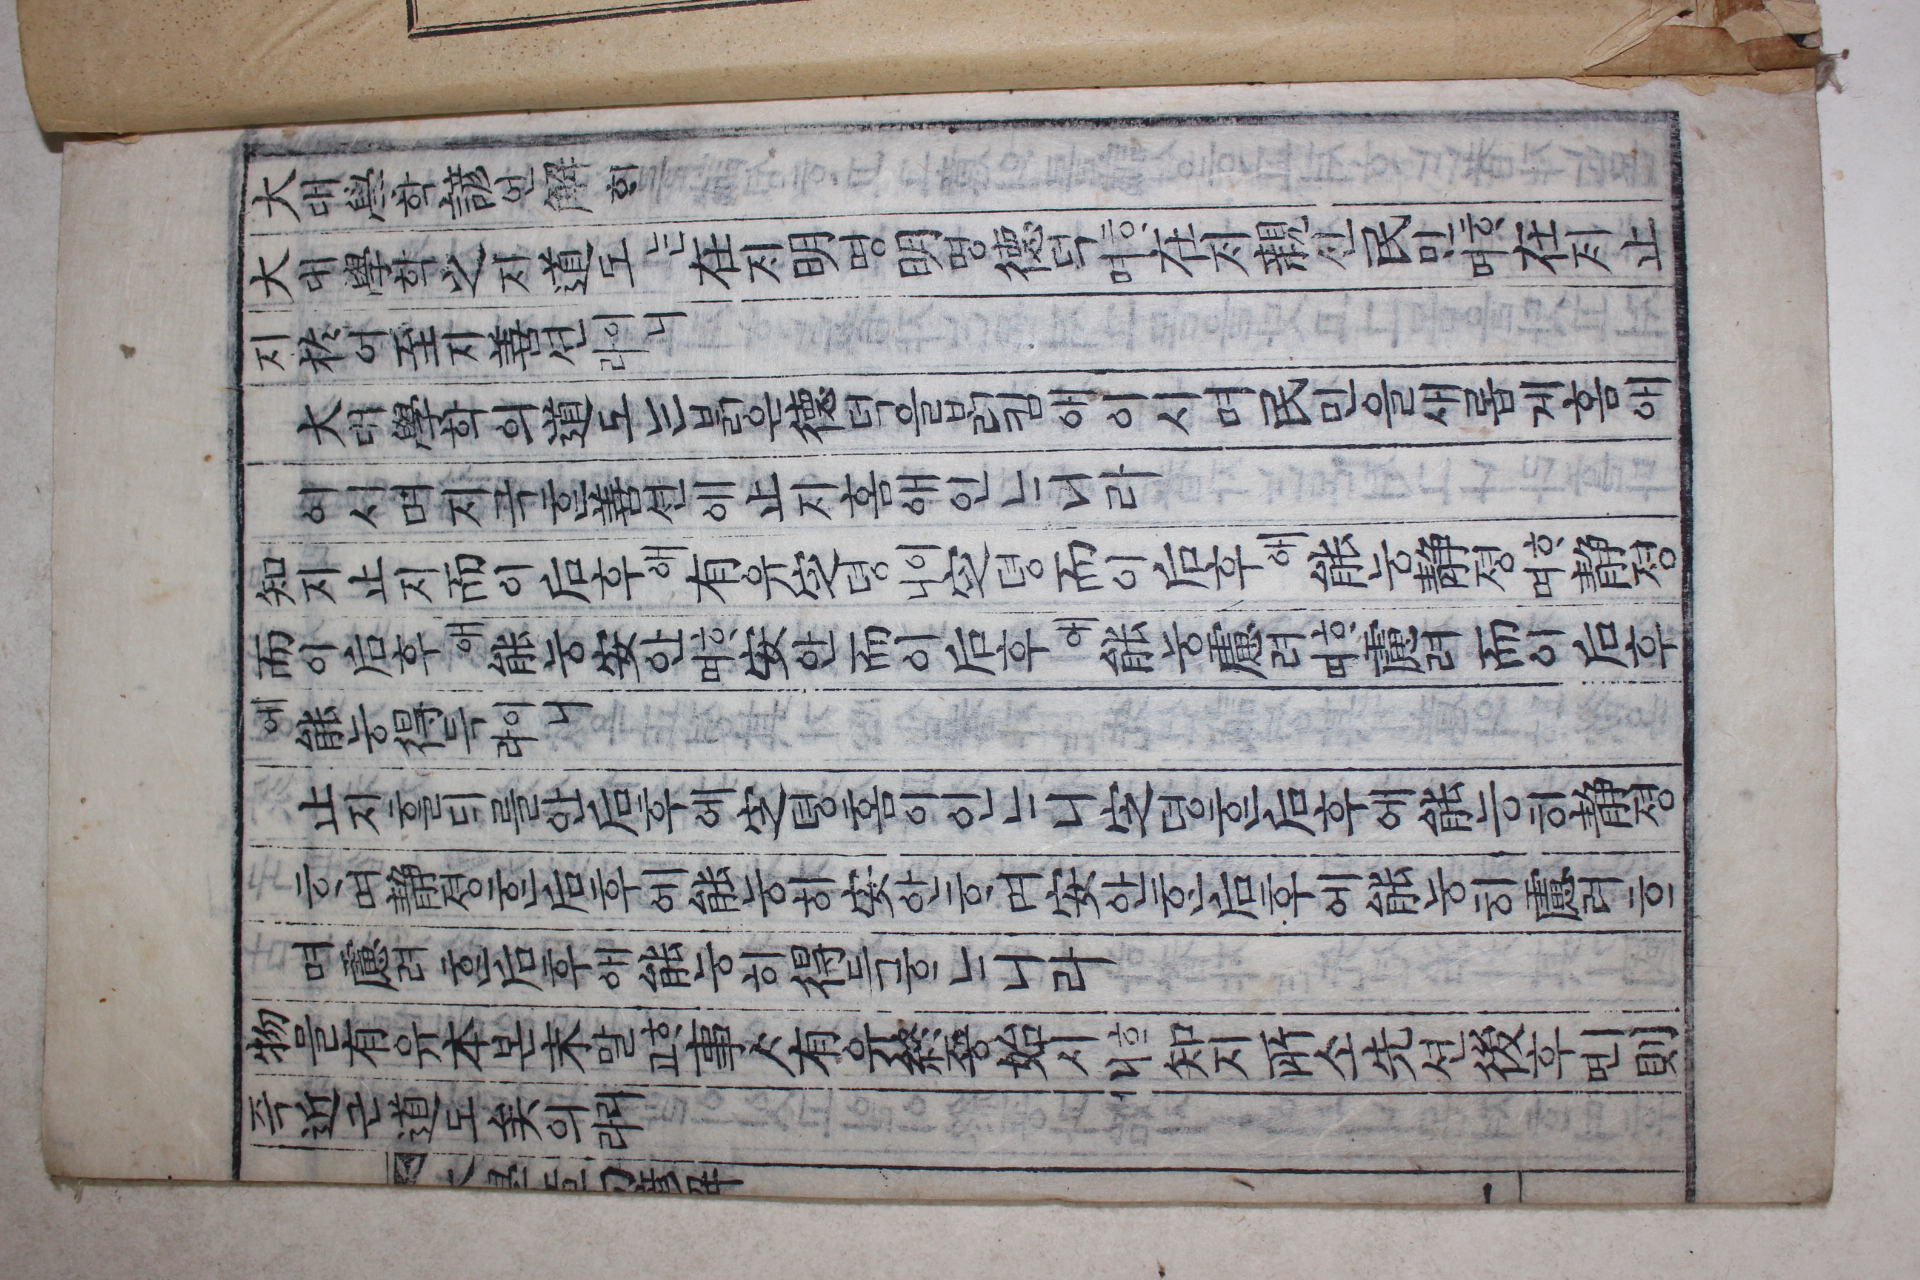 大대學학諺언解ᄒᆡ
大대學학之지道도ᄂᆞᆫ在ᄌᆡ明명明명德덕ᄒᆞ며在ᄌᆡ親신民민ᄒᆞ며在ᄌᆡ止
지於어至지善션이니라
大대學학의道도ᄂᆞᆫᄇᆞᆰ은德덕을ᄇᆞᆰ킴애이시며民민을새롭게홈애
이시며지극ᄒᆞᆫ善션에止지홈애인ᄂᆞ니라
知지止지而이后후애有유定뎡이니定뎡而이后후애能능静졍ᄒᆞ며静졍
而이后후애能능安안ᄒᆞ며安안而이后후애能능慮려ᄒᆞ며慮려而이后후
에能능得득이니라
止지ᄒᆞᆯᄃᆡ를안后후에定뎡홈이인ᄂᆞ니定뎡ᄒᆞᆫ后후에能능히静졍
ᄒᆞ며静졍ᄒᆞᆫ后후에能능히安안ᄒᆞ며安안ᄒᆞᆫ后후에能능히慮려ᄒᆞ
며慮려ᄒᆞᆫ后후애能능히得득ᄒᆞᄂᆞ니라
物믈有유本본末말ᄒᆞ고事ᄉᆞ有유終죵始시ᄒᆞ니知지所소先션後후면則
즉近근道도矣의리라
大學章句諺解
一